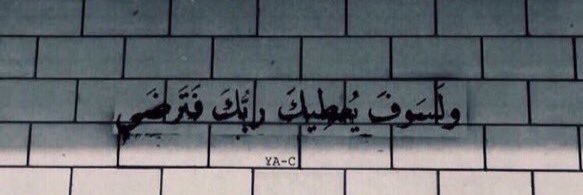 ولَسَوفَ يُعطِيكَ رَبُّكَ فَتَرضَى
YA-C